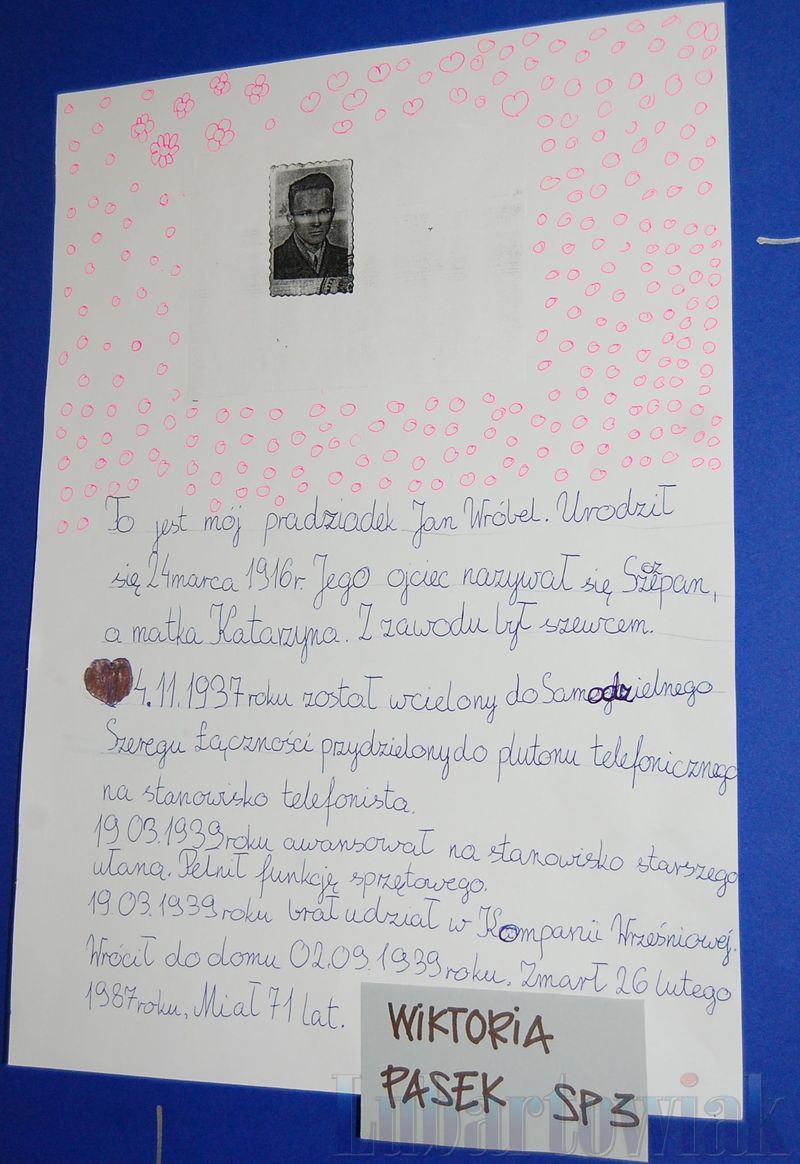 To jest mój pradziadek Jan Wróbel. Urodził
się 24 marca 1916r. Jego ojciec nazywał się Szczepan,
a matka Katarzyna. Z zawodu był szewcem.
4.11.1937 roku został wcielony do Samodzielnego
Szeregu Łączności przydzielony do plutonu telefonicznego
na stanowisko telefonista.
19.03.1939 roku awansował na stanowisko starszego
ułana. Pełnił funkcję sprzętowego.
19.03.1939 roku brał udział w Kompanii Wrześniowej.
Wrócił do domu 02.09.1939 roku. Zmarł 26 lutego
1987 roku, Miał 71 lat.
WIKTORIA
PASEK SP 3
Lubartowiak